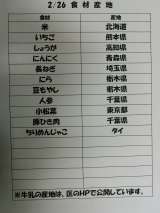 2/26 食材産地
食材 産地
米 北海道
いちご 熊本県
しょうが 高知県
にんにく 青森県
長ねぎ 埼玉県
にら 栃木県
豆もやし 栃木県
人参 千葉県
小松菜 東京都
豚ひき肉 千葉県
ちりめんじゃこ タイ
※牛乳の産地は、区のHPで公開しています。